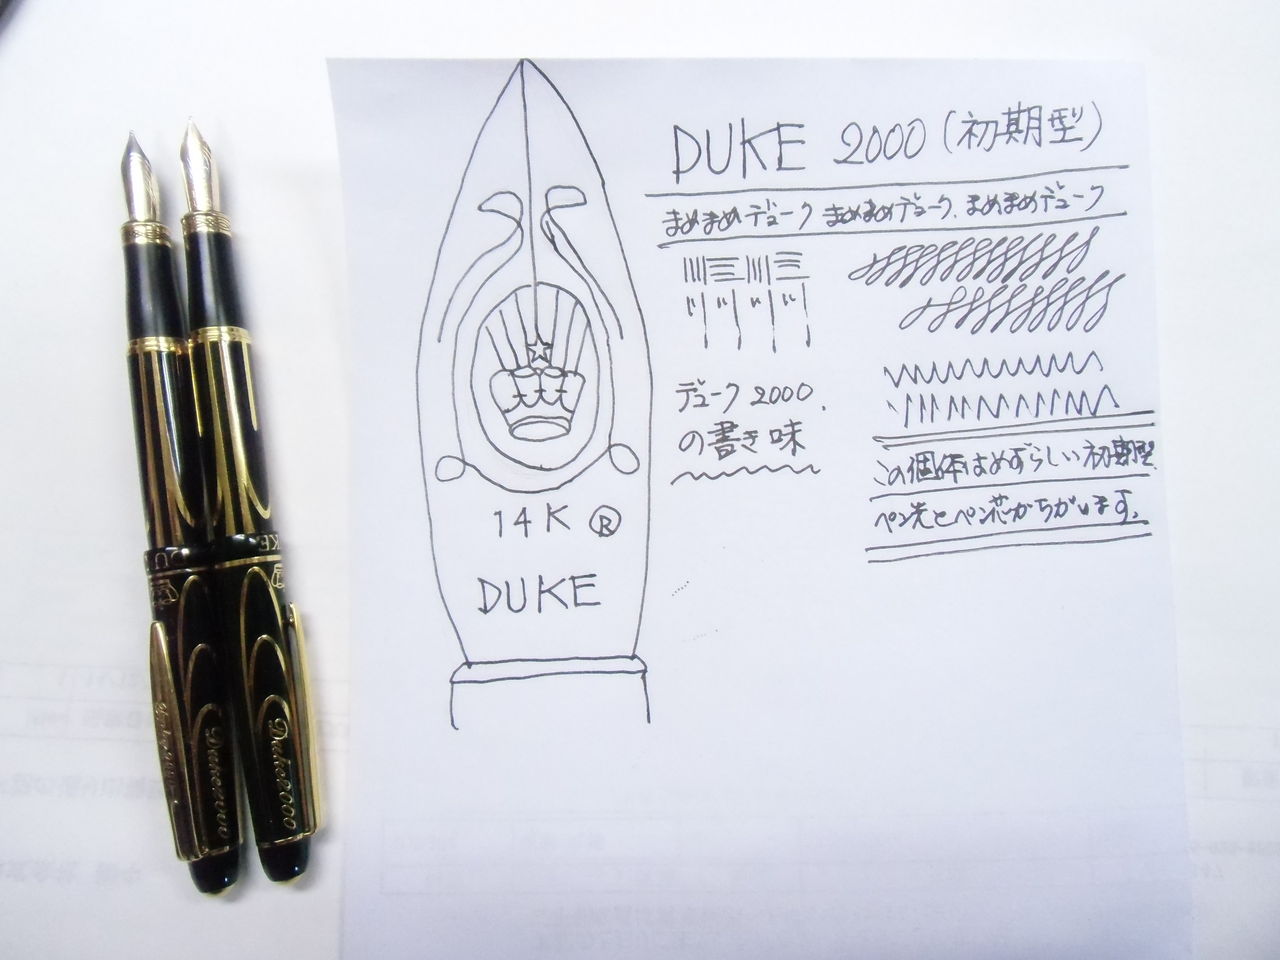 DUKE 2000 (初期型)
まめまめデューク まめまめデューク、まめまめデューク
デューク 2000.
の書き味
この個体はめずらしい初期型
ペン先とペン芯がちがいます。
14K ®
DUKE
DU
KE
Duke2000
Duke2000